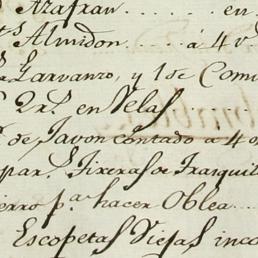 Azafran ..... en
Almidon ..... á 4 v
Garvanzo, y 1 de Comi
2 r.s en Velas
de Javon contado á 4 o
par.s Tixeras de Trasquil
ierro p.a hacer Oblea .....
Escopetas Viejas inco